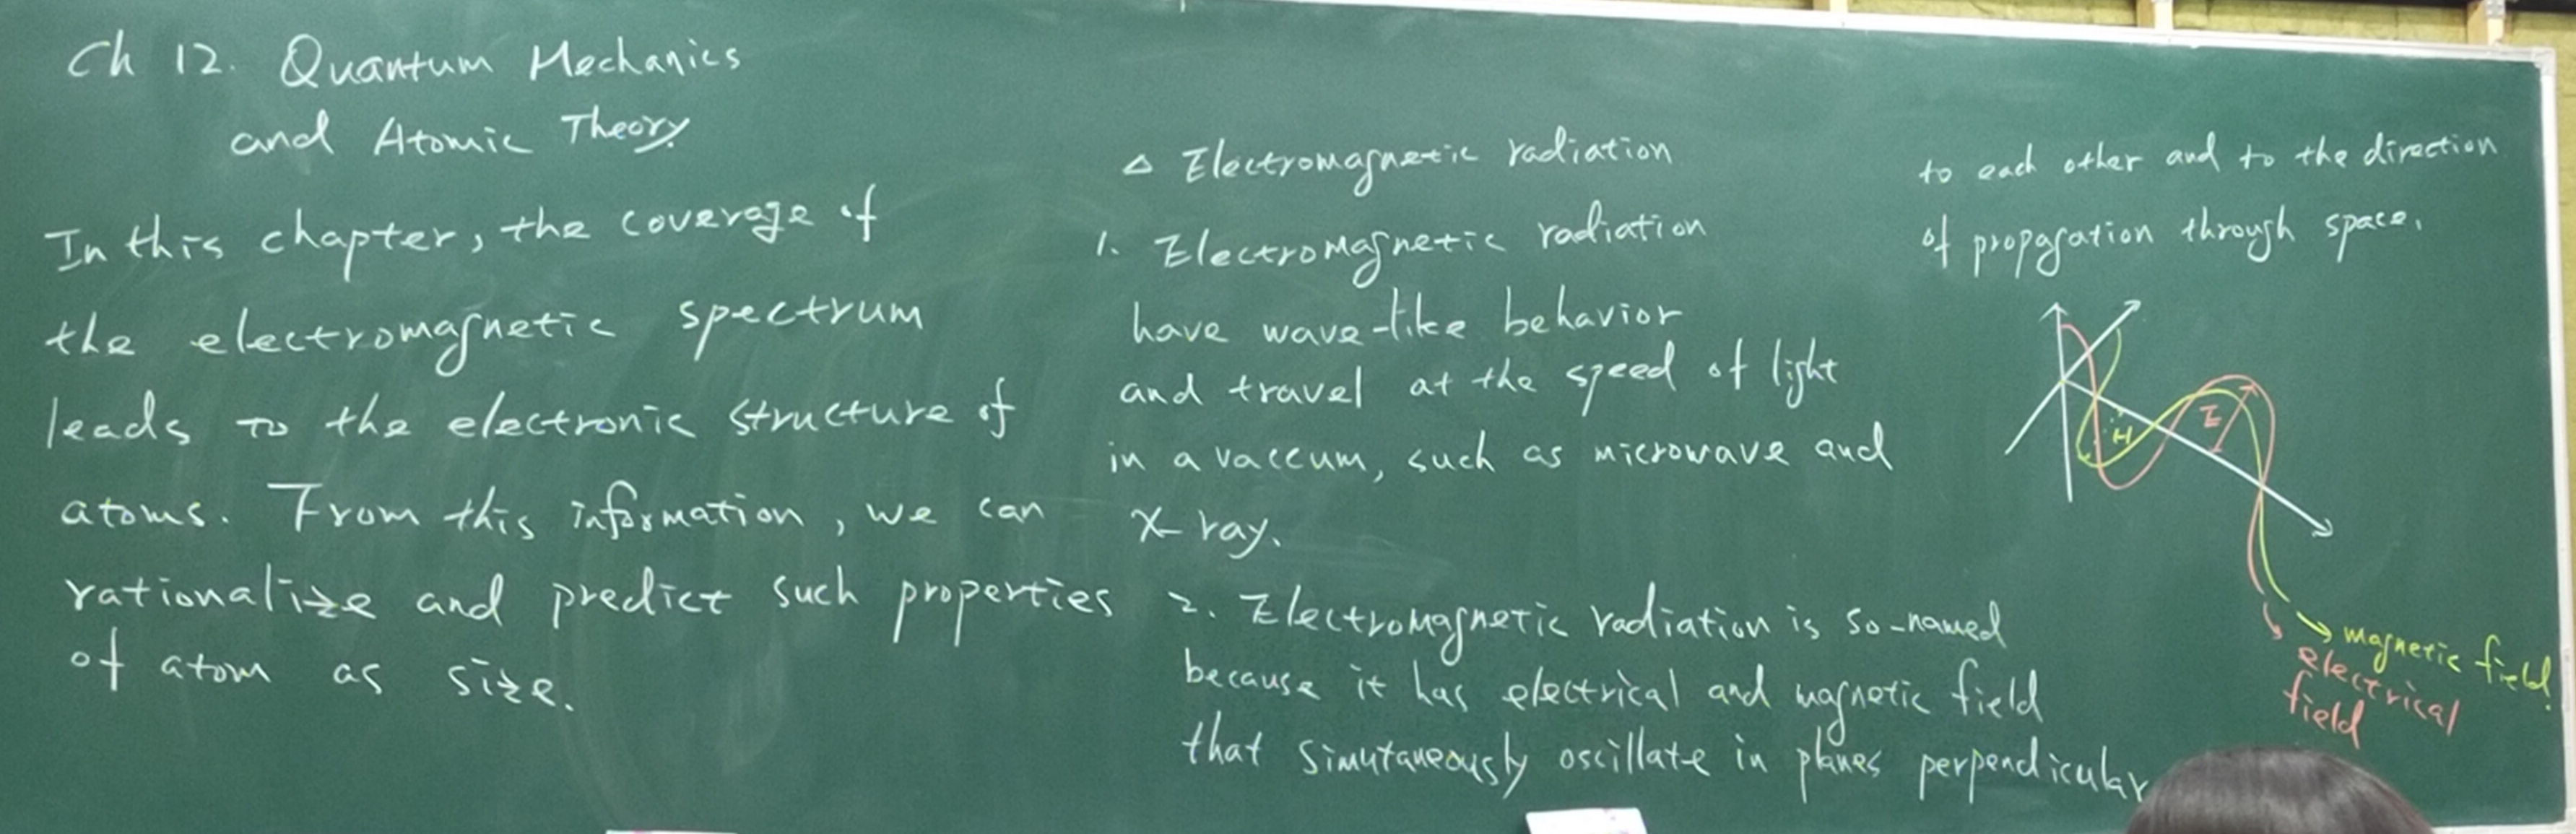 Ch 12. Quantum Mechanics
and Atomic Theory.
In this chapter, the coverage of
the electromagnetic spectrum
leads to the electronic structure of
atoms. From this information, we can
rationalize and predict such properties
of atom as size.
△ Electromagnetic radiation
1. Electromagnetic radiation
have wave-like behavior
and travel at the speed of light
in a vaccum, such as microwave and
X-ray.
2. Electromagnetic radiation is so-named
because it has electrical and magnetic field
that simutaneously oscillate in planes perpendicular
to each other and to the direction
of propagation through space.
H
E
magnetic field
electrical
field